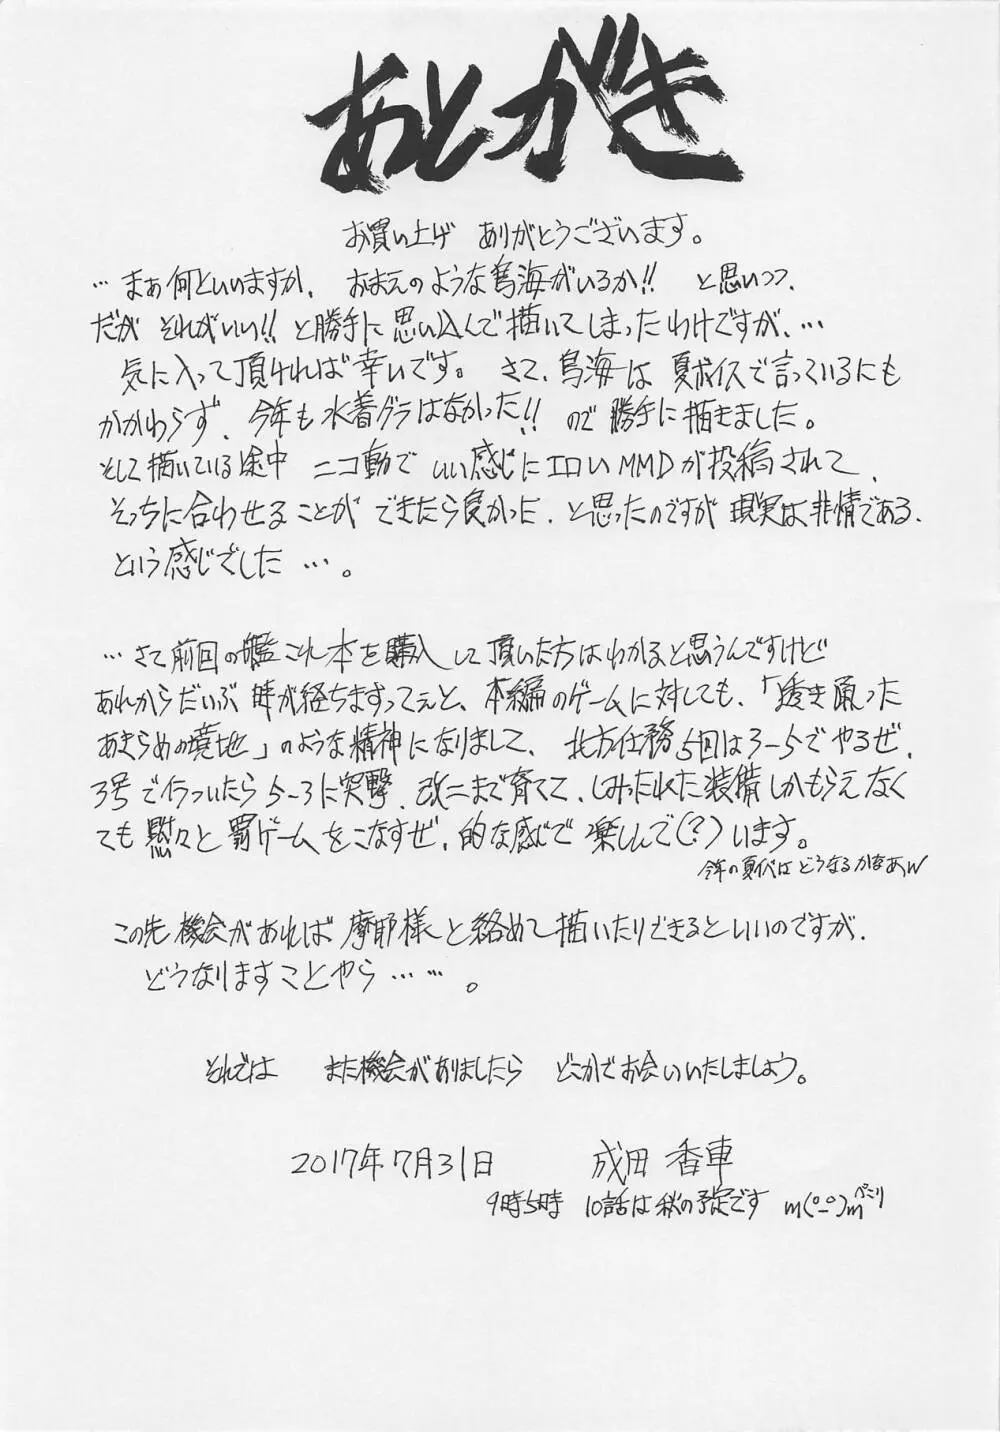 あとがき
お買い上げ ありがとうございます。
…まぁ何といいますか、おまえのような鳥海がいるか!! と思いつつ、
だが それがいい!! と勝手に思い込んで描いてしまったわけですが、…
気に入って頂ければ幸いです。さて、鳥海は夏ボイスで言っているにも
かかわらず、今年も水着グラはなかった!! ので勝手に描きました。
そして描いている途中 ニコ動で いい感じにエロいMMDが投稿されて、
そっちに合わせることが できたら良かった、と思ったのですが 現実は非情である、
という感じでした…。
…さて前回の艦これ本を購入して頂いた方はわかると思うんですけど
あれからだいぶ 時が経ちますってぇと、本編のゲームに対しても、「透き通った
あきらめの境地」のような精神になりまして、北方任務5回は3-5でやるぜ、
3号で行ついたら5-3に突撃、改二まで育てて、しみったれた装備しかもらえなく
ても黙々と罰ゲームをこなすぜ、的な感じで 楽しんで(?)います。
今年の夏イベは どうなるかなぁw
この先 機会があれば 摩耶様と絡めて描いたりできるといいのですが、
どうなりますことやら……。
それでは また機会がありましたら どこかでお会いいたしましょう。
2017年7月31日 成田 香車
9時5時 10話は秋の予定です m(°_°)m ぺこり